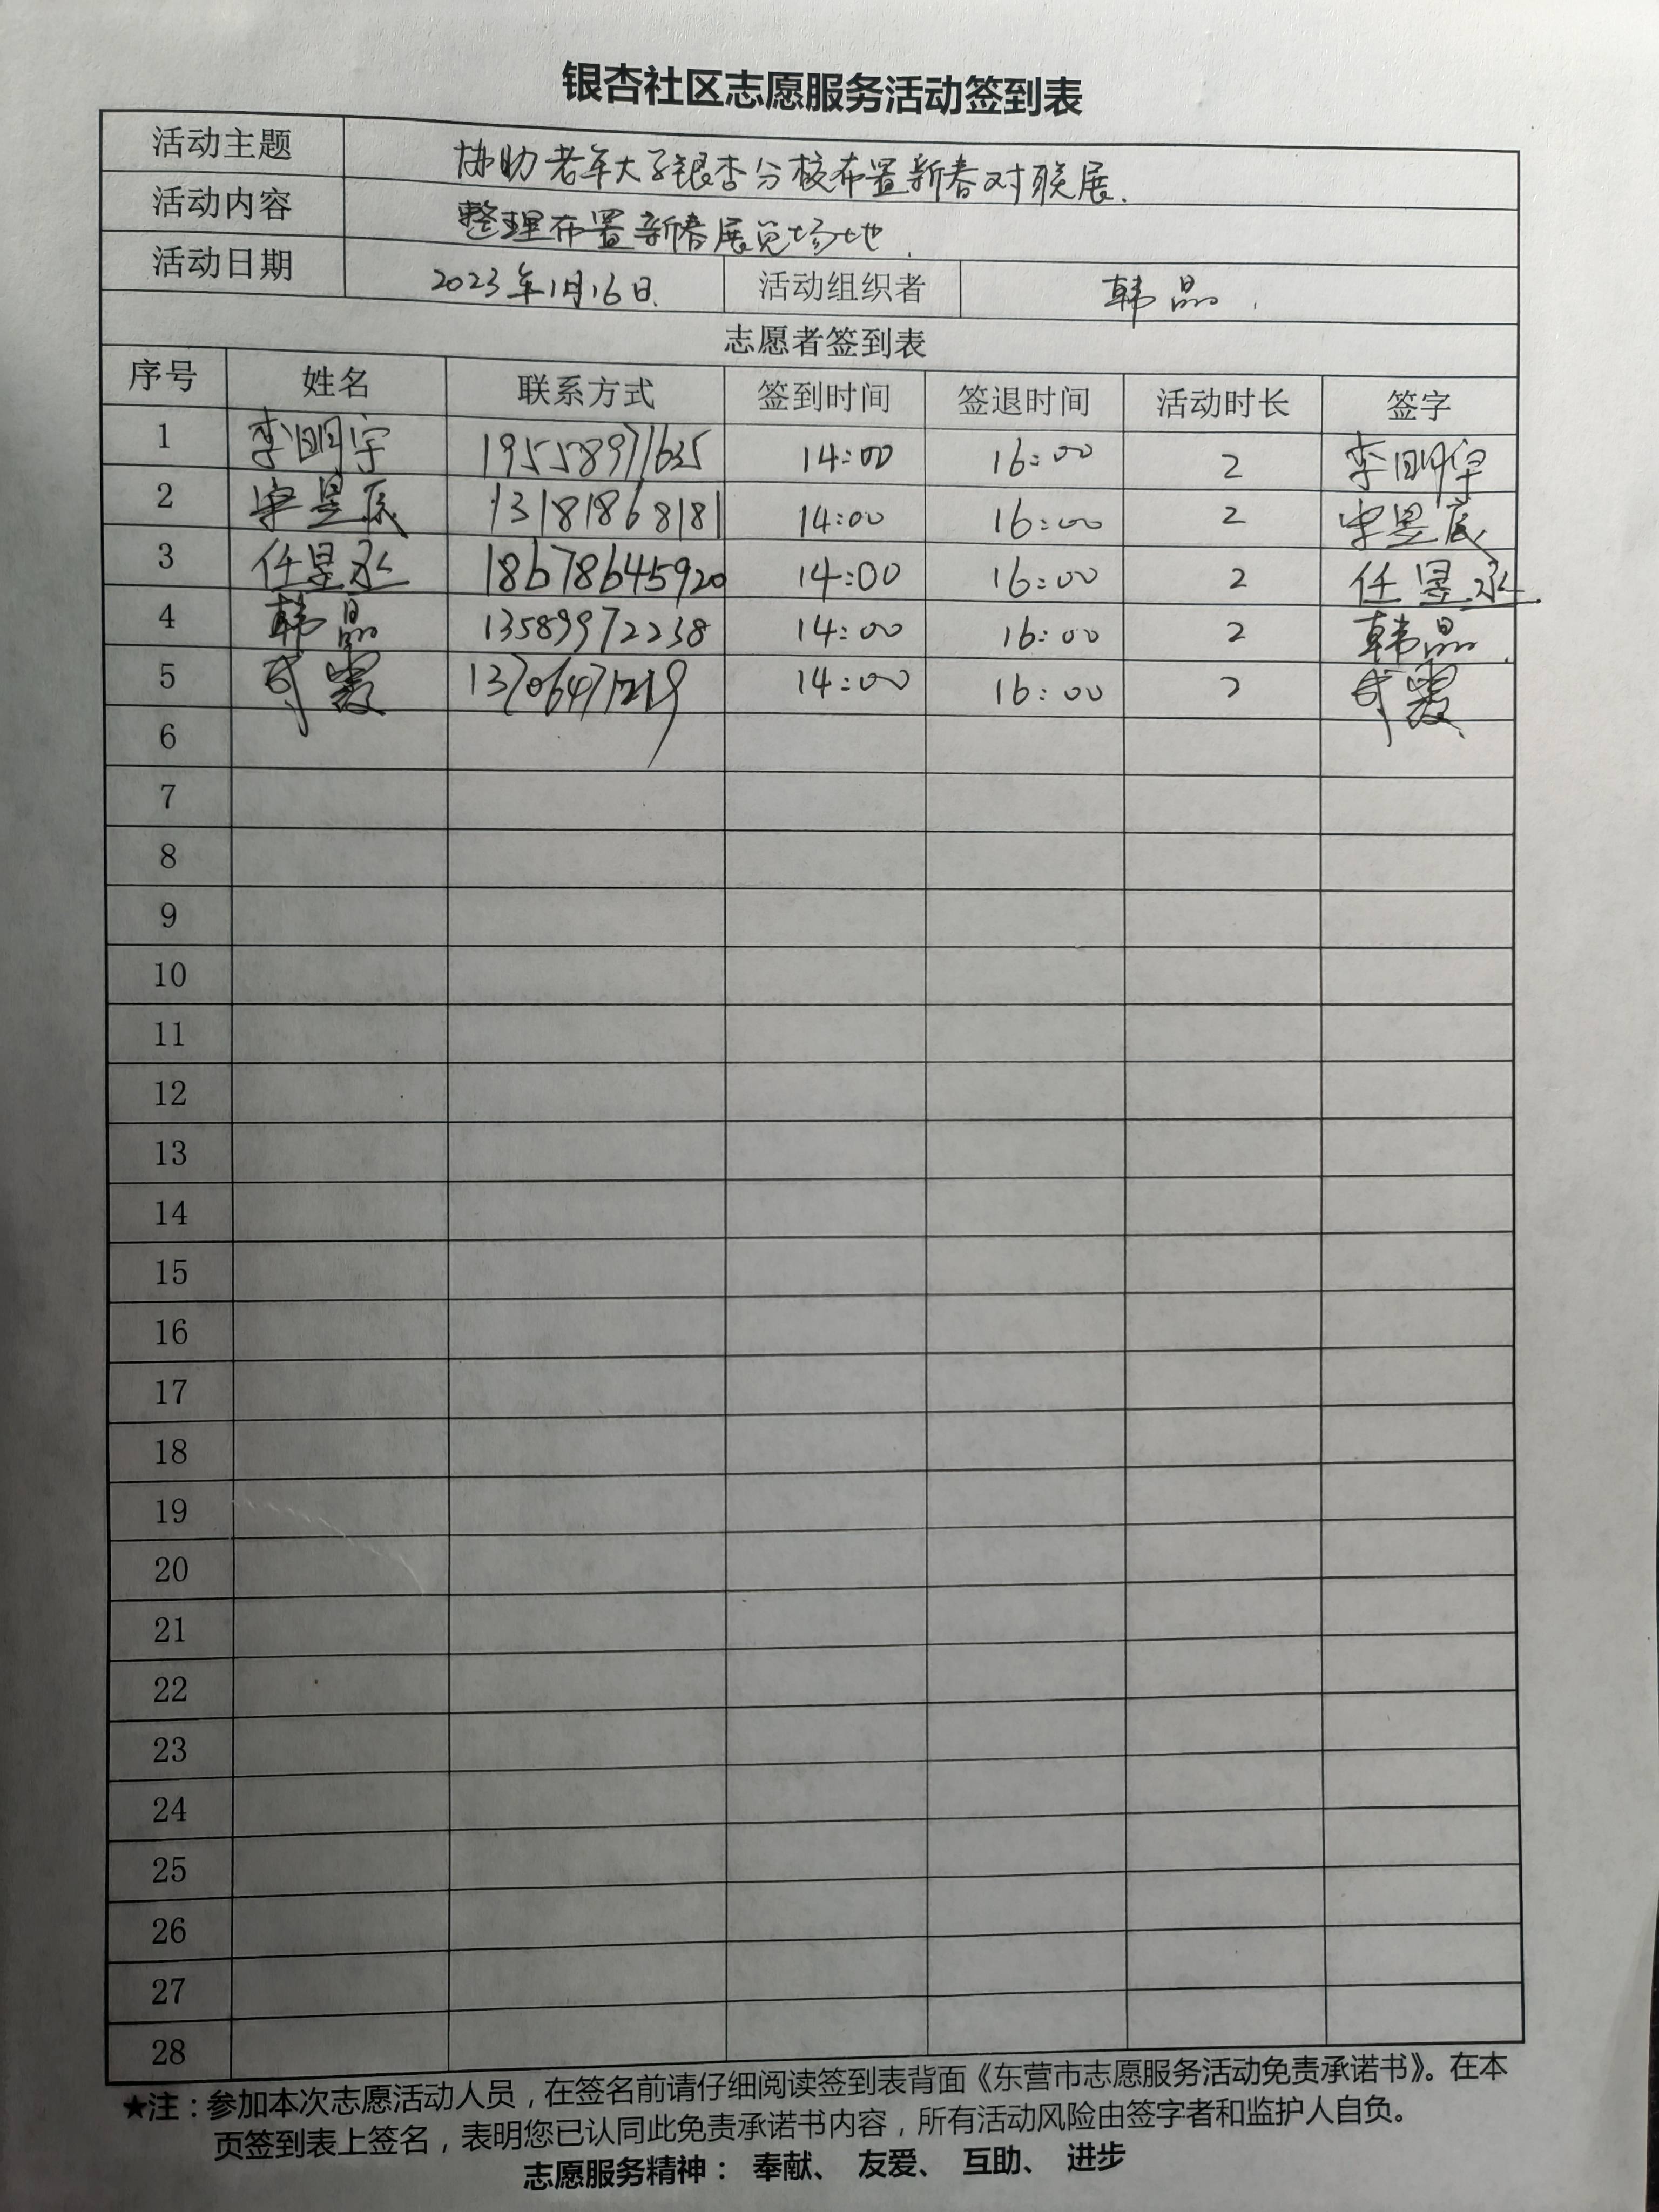 银杏社区志愿服务活动签到表
活动主题 协助老年大学银杏分校布置新春对联展.
活动内容 整理布置新春展览场地.
活动日期 2023年1月16日. 活动组织者 韩晶.
志愿者签到表
序号 姓名 联系方式 签到时间 签退时间 活动时长 签字
1 李明宇 19558971635 14:00 16:00 2 李明宇
2 宋昱辰 13181868181 14:00 16:00 2 宋昱辰
3 任昱丞 18678645920 14:00 16:00 2 任昱丞
4 韩晶 13589972238 14:00 16:00 2 韩晶
5 霞 14:00 16:00 2 霞
6
7
8
9
10
11
12
13
14
15
16
17
18
19
20
21
22
23
24
25
26
27
28
★注：参加本次志愿活动人员，在签名前请仔细阅读签到表背面《东营市志愿服务活动免责承诺书》。在本
页签到表上签名，表明您已认同此免责承诺书内容，所有活动风险由签字者和监护人自负。
志愿服务精神： 奉献、 友爱、 互助、 进步